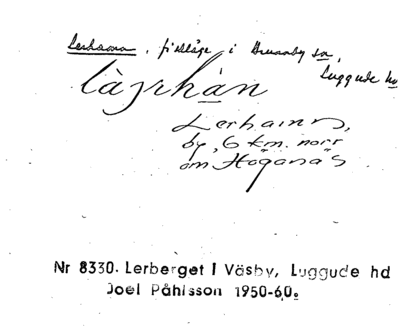 Lerhamn, fiskläge i Brunnby sn,
Luggude hd
làʒrhàn
Lerhamn,
by, 6 km. norr
om Höganäs
Nr 8330. Lerberget i Väsby, Luggude hd
Joel Påhlsson 1950-60.